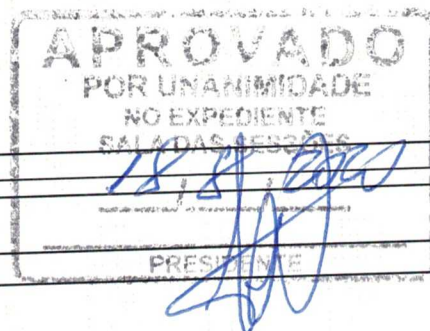 APROVADO
POR UNANIMIDADE
NO EXPEDIENTE
SALA DAS SESSÕES
18, 8, 2020
PRESIDENTE